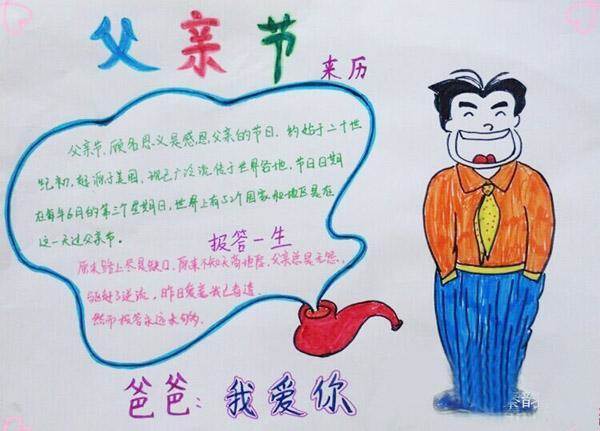 父亲节
来历
父亲节,顾名思义是感恩父亲的节日,约始于二十世
纪初,起源于美国,现已广泛流传于世界各地,节日日期
在每年6月的第三个星期日,世界上有52个国家和地区是在
这一天过父亲节。
报答一生
父亲总是无怨,
昨日
然而报答永远未
爸爸:我爱你